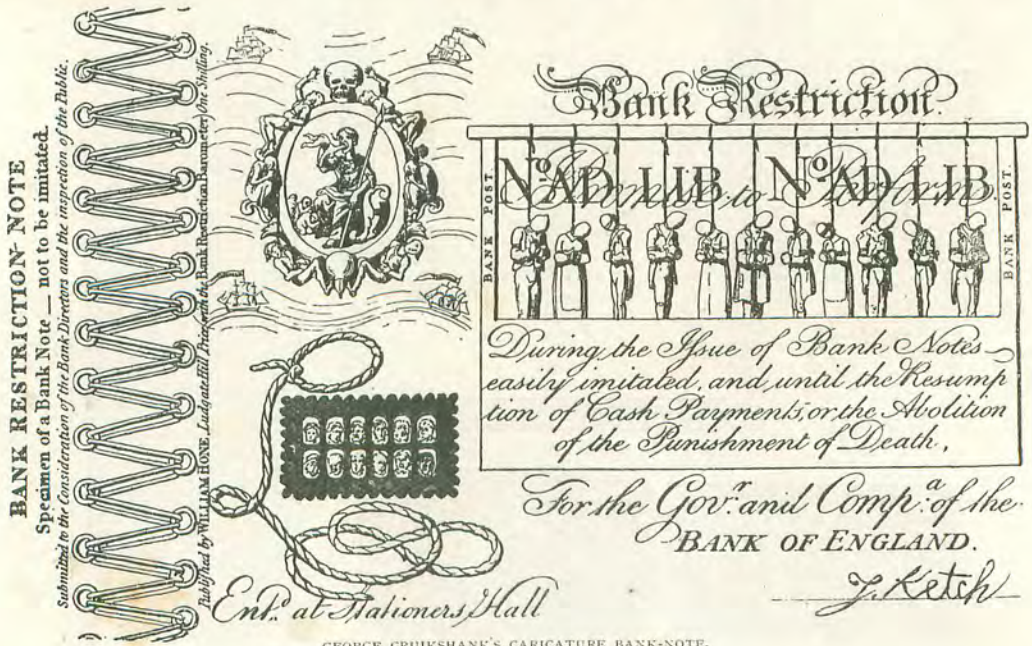 BANK RESTRICTION NOTE
Specimen of a Bank Note — not to be imitated.
Submitted to the Consideration of the Bank Directors and the inspection of the Public.
Published by WILLIAM HONE, Ludgate Hill Price with the Bank Restriction Barometer, One Shilling.
Bank Restriction.
BANK POST.
No. AD LIB No. AD LIB
I Promise to Perform
BANK POST.
During the Issue of Bank Notes
easily imitated, and until the Resump
tion of Cash Payments, or the Abolition
of the Punishment of Death,
For the Govr. and Compa. of the
BANK OF ENGLAND.
J. Ketch
Entd. at Stationers Hall
GEORGE CRUIKSHANK'S CARICATURE BANK-NOTE.